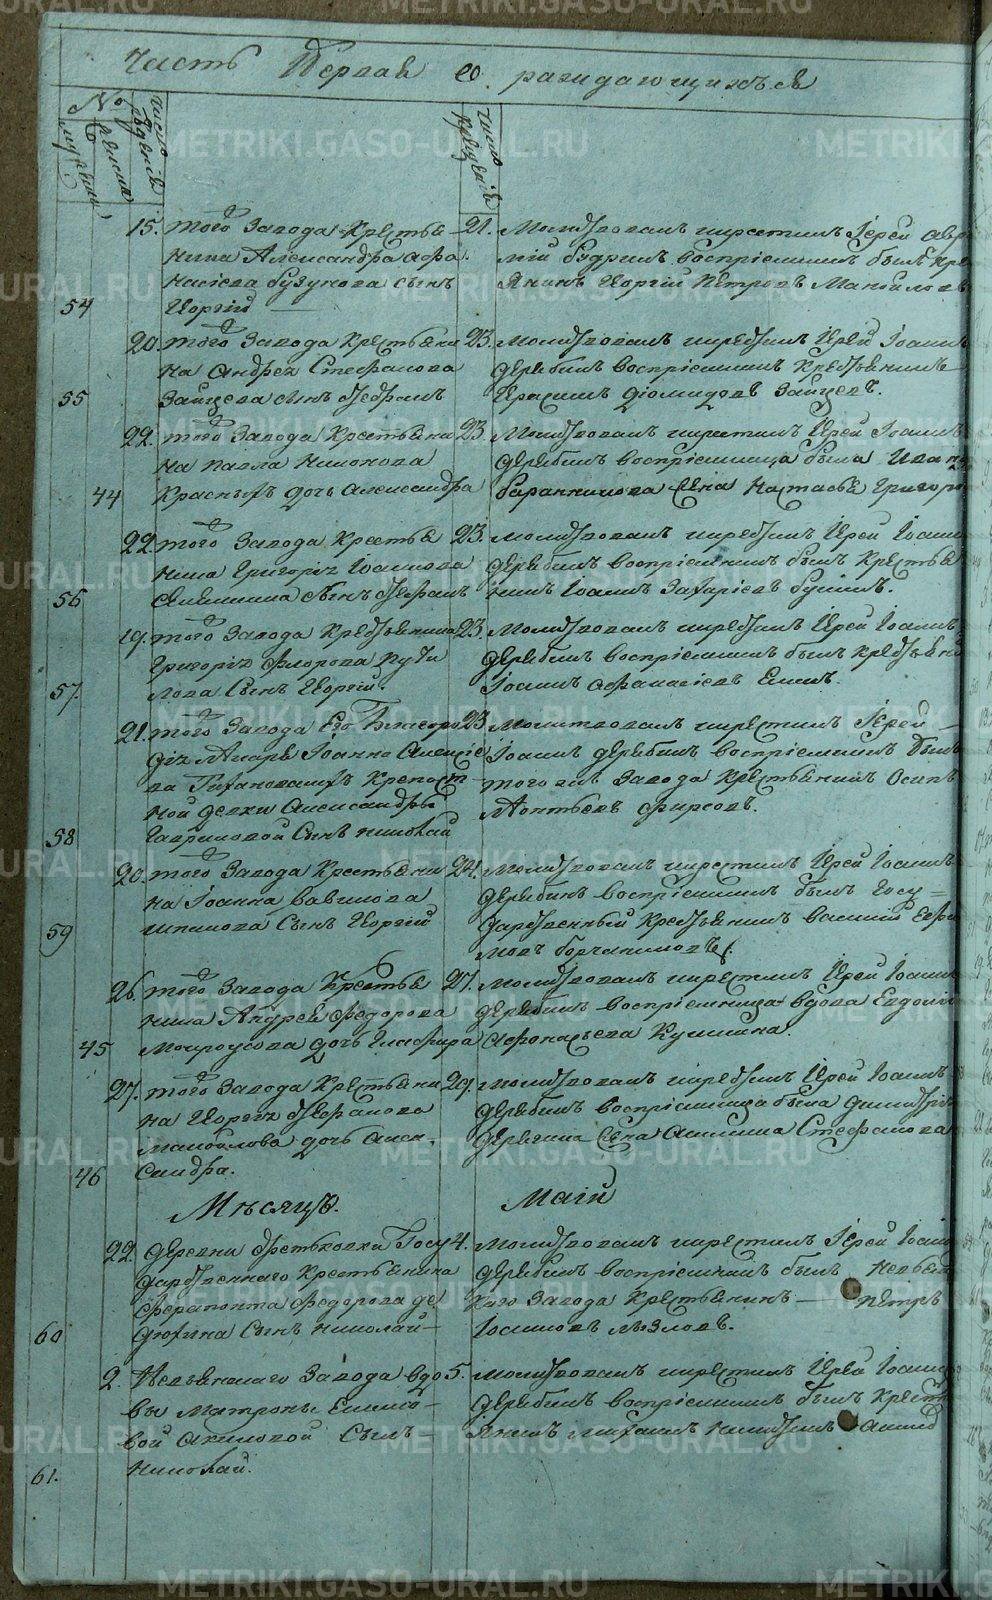 Часть Первая о раждающихся
№
мужеска
женска
Число рождения
Число крещения
54
15. того Завода Крестья
нина Александра Афа
насіева бузунова сынъ
Георгій
21. Молитвовалъ икрестилъ Іерей
воспріемникъ былъ Кре
янинъ Георгій Петровъ Маноиловъ
55
20. того Завода Крестьяни
на Андрея Стефанова
Зайцева сынъ Стефанъ
23. молитвовалъ икрестилъ Іерей Іоаннъ
Дерябинъ воспріемникъ Крестьянинъ
Герасимъ Діомидовъ Зайцевъ.
44
22. того Завода Крестьяни
на Павла Никонова
Красныхъ дочь Александра
23. Молитвовалъ икрестилъ Іерей Іоаннъ
Дерябинъ воспріемница была Ивана
баранникова жена Настасья Григорь
56
22. того Завода Крестья
нина Григорія Іоаннова
сынъ Стефанъ
23. молитвовалъ икрестилъ Іерей Іоаннъ
Дерябинъ воспріемникъ былъ Крестья
нинъ Іоаннъ Захаріевъ
57
19. того Завода Крестьянина
Григорія Флорова Пути
лова Сынъ Георгій.
23. Молитвовалъ икрестилъ Іерей Іоаннъ
Дерябинъ воспріемникъ былъ Крестьяни
Іоаннъ Афанасіевъ
58
21. того Завода Его Благоро
дія Іоанна Алексіе
ва Крепост
ной девки Александры
Гавриловой Сынъ Николай
23. Молитвовалъ икрестилъ Іерей
Іоаннъ Дерябинъ воспріемникъ былъ
того же Завода Крестьянинъ Осипъ
Леонтьевъ Фирсовъ.
59
20. того Завода Крестьяни
на Іоанна Вавилова
Шпанова Сынъ Георгій
24. Молитвовалъ икрестилъ Іерей Іоаннъ
Дерябинъ воспріемникъ былъ Госу
дарственный Крестьянинъ Василій
мовъ борчаниновъ.
45
26. того Завода Крестья
нина Андрея Федорова
Мокроусова дочь Глафира
27. Молитвовалъ икрестилъ Іерей Іоаннъ
Дерябинъ воспріемница вдова Евдокія
Афонасьева Кушкина.
46
27. того Завода Крестьяни
на Георгія Стефанова
маноилова дочь Алек
сандра.
29. Молитвовалъ икрестилъ Іерей Іоаннъ
Дерябинъ воспріемница была Димитрія
Дерягина жена Акилина Стефанова
Мѣсяцъ. Маій
60
22. Деревни Госу
дарственнаго Крестьянина
Ферапонта Федорова де
дюхина Сынъ Николай
4. Молитвовалъ икрестилъ Іерей Іоаннъ
Дерябинъ воспріемникъ былъ Невьян
каго Завода Крестьянинъ Петръ
Іоанновъ Мызловъ.
61.
2. Невьянскаго Завода вдо
вы Матроны
вой Акиловой Сынъ
Николай.
5. молитвовалъ икрестилъ Іерей Іоаннъ
Дерябинъ воспріемникъ былъ Крест
янинъ Михаилъ Никитинъ
METRIKI.GASO-URAL.RU